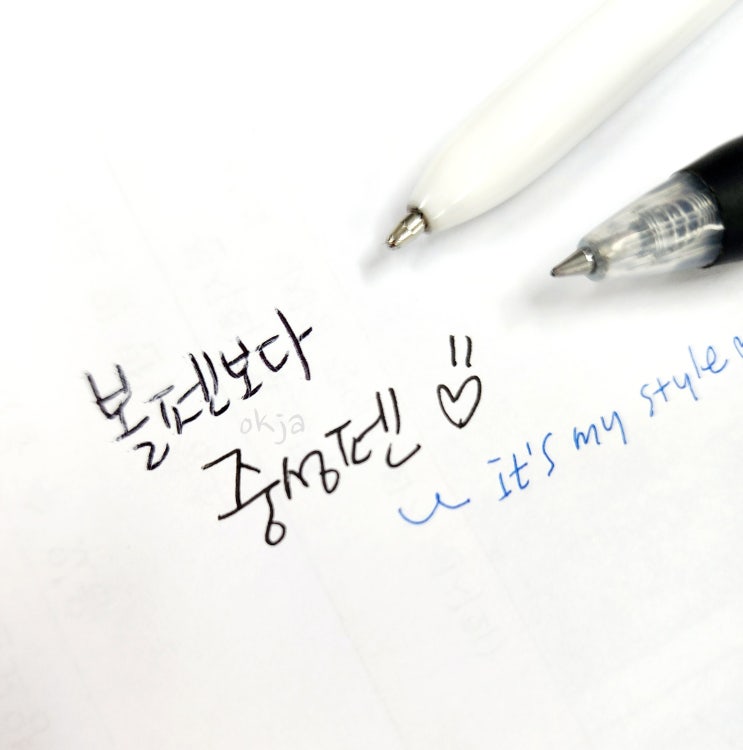 볼펜보다
okja
중성펜
It's my style